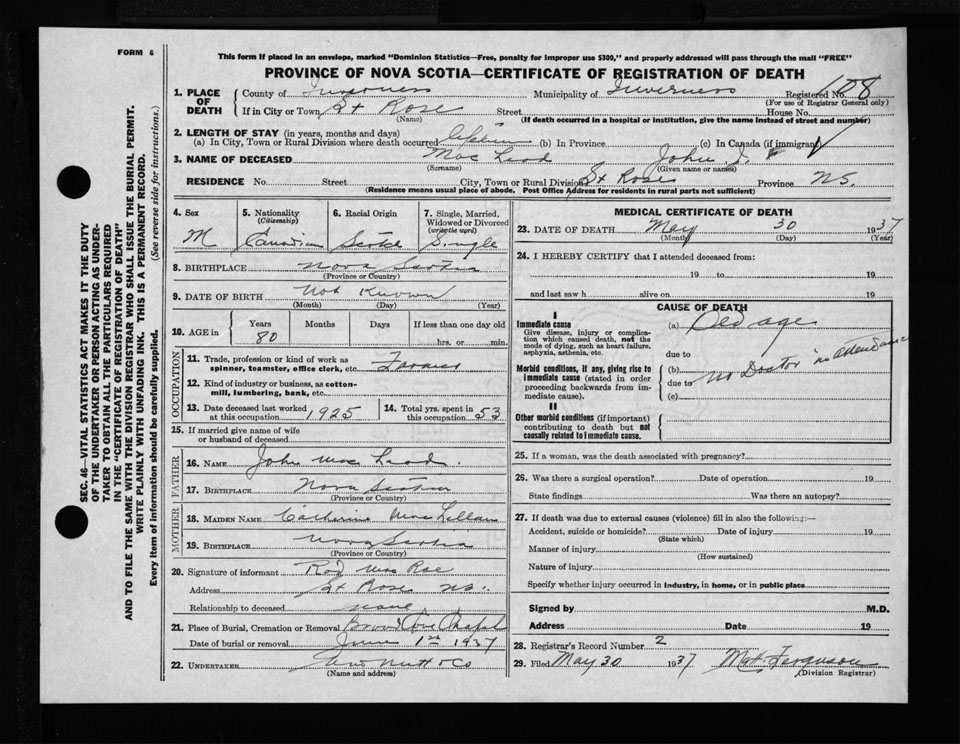 FORM 6
This form if placed in an envelope, marked "Dominion Statistics—Free, penalty for improper use $300," and properly addressed will pass through the mail "FREE"
PROVINCE OF NOVA SCOTIA—CERTIFICATE OF REGISTRATION OF DEATH
SEC. 46—VITAL STATISTICS ACT MAKES IT THE DUTY
OF THE UNDERTAKER OR PERSON ACTING AS UNDER-
TAKER TO OBTAIN ALL THE PARTICULARS REQUIRED
IN THE "CERTIFICATE OF REGISTRATION OF DEATH"
AND TO FILE THE SAME WITH THE DIVISION REGISTRAR WHO SHALL ISSUE THE BURIAL PERMIT.
WRITE PLAINLY WITH UNFADING INK. THIS IS A PERMANENT RECORD.
Every item of information should be carefully supplied. (See reverse side for instructions.)
1. PLACE OF DEATH County of Inverness Municipality of Inverness Registered No. 108
(For use of Registrar General only)
If in City or Town St Rose Street House No.
(Name) (If death occurred in a hospital or institution, give the name instead of street and number)
2. LENGTH OF STAY (in years, months and days)
(a) In City, Town or Rural Division where death occurred (b) In Province (c) In Canada (if immigrant)
3. NAME OF DECEASED Mac Leod John J.
(Surname) (Given name or names)
RESIDENCE No. Street City, Town or Rural Division St Rose Province NS.
(Residence means usual place of abode. Post Office Address for residents in rural parts not sufficient)
4. Sex 5. Nationality 6. Racial Origin 7. Single, Married,
(Citizenship) Widowed or Divorced
(write the word)
M Canadian Scotch Single
8. BIRTHPLACE Nova Scotia
(Province or Country)
9. DATE OF BIRTH Not Known
(Month) (Day) (Year)
10. AGE in Years Months Days If less than one day old
80 hrs. or min.
OCCUPATION
11. Trade, profession or kind of work as
spinner, teamster, office clerk, etc. Farmer
12. Kind of industry or business, as cotton-
mill, lumbering, bank, etc.
13. Date deceased last worked
at this occupation 1925
14. Total yrs. spent in
this occupation 53
15. If married give name of wife
or husband of deceased
FATHER
16. NAME John Mac Leod.
17. BIRTHPLACE Nova Scotia
(Province or Country)
MOTHER
18. MAIDEN NAME Catherine Mac Lellan
19. BIRTHPLACE Nova Scotia
(Province or Country)
20. Signature of informant Rod Mac Rae
Address St Rose NS.
Relationship to deceased none
21. Place of Burial, Cremation or Removal Broad Cove Chapel
Date of burial or removal June 1st 1937
22. UNDERTAKER
(Name and address)
MEDICAL CERTIFICATE OF DEATH
23. DATE OF DEATH May 30 1937
(Month) (Day) (Year)
24. I HEREBY CERTIFY that I attended deceased from:
19 to 19
and last saw h alive on 19
CAUSE OF DEATH
I
Immediate cause (a) Old age
Give disease, injury or complica-
tion which caused death, not the
mode of dying, such as heart failure,
asphyxia, asthenia, etc.
due to
Morbid conditions, if any, giving rise to (b)
immediate cause (stated in order due to no Doctor in attendance
proceeding backwards from im-
mediate cause). (c)
II
Other morbid conditions (if important)
contributing to death but not
causally related to immediate cause.
25. If a woman, was the death associated with pregnancy?
26. Was there a surgical operation? Date of operation 19
State findings Was there an autopsy?
27. If death was due to external causes (violence) fill in also the following:—
Accident, suicide or homicide? Date of injury 19
(State which)
Manner of injury
(How sustained)
Nature of injury
Specify whether injury occurred in industry, in home, or in public place
Signed by M.D.
Address Date 19
28. Registrar's Record Number 2
29. Filed May 30 1937 Ferguson
(Division Registrar)